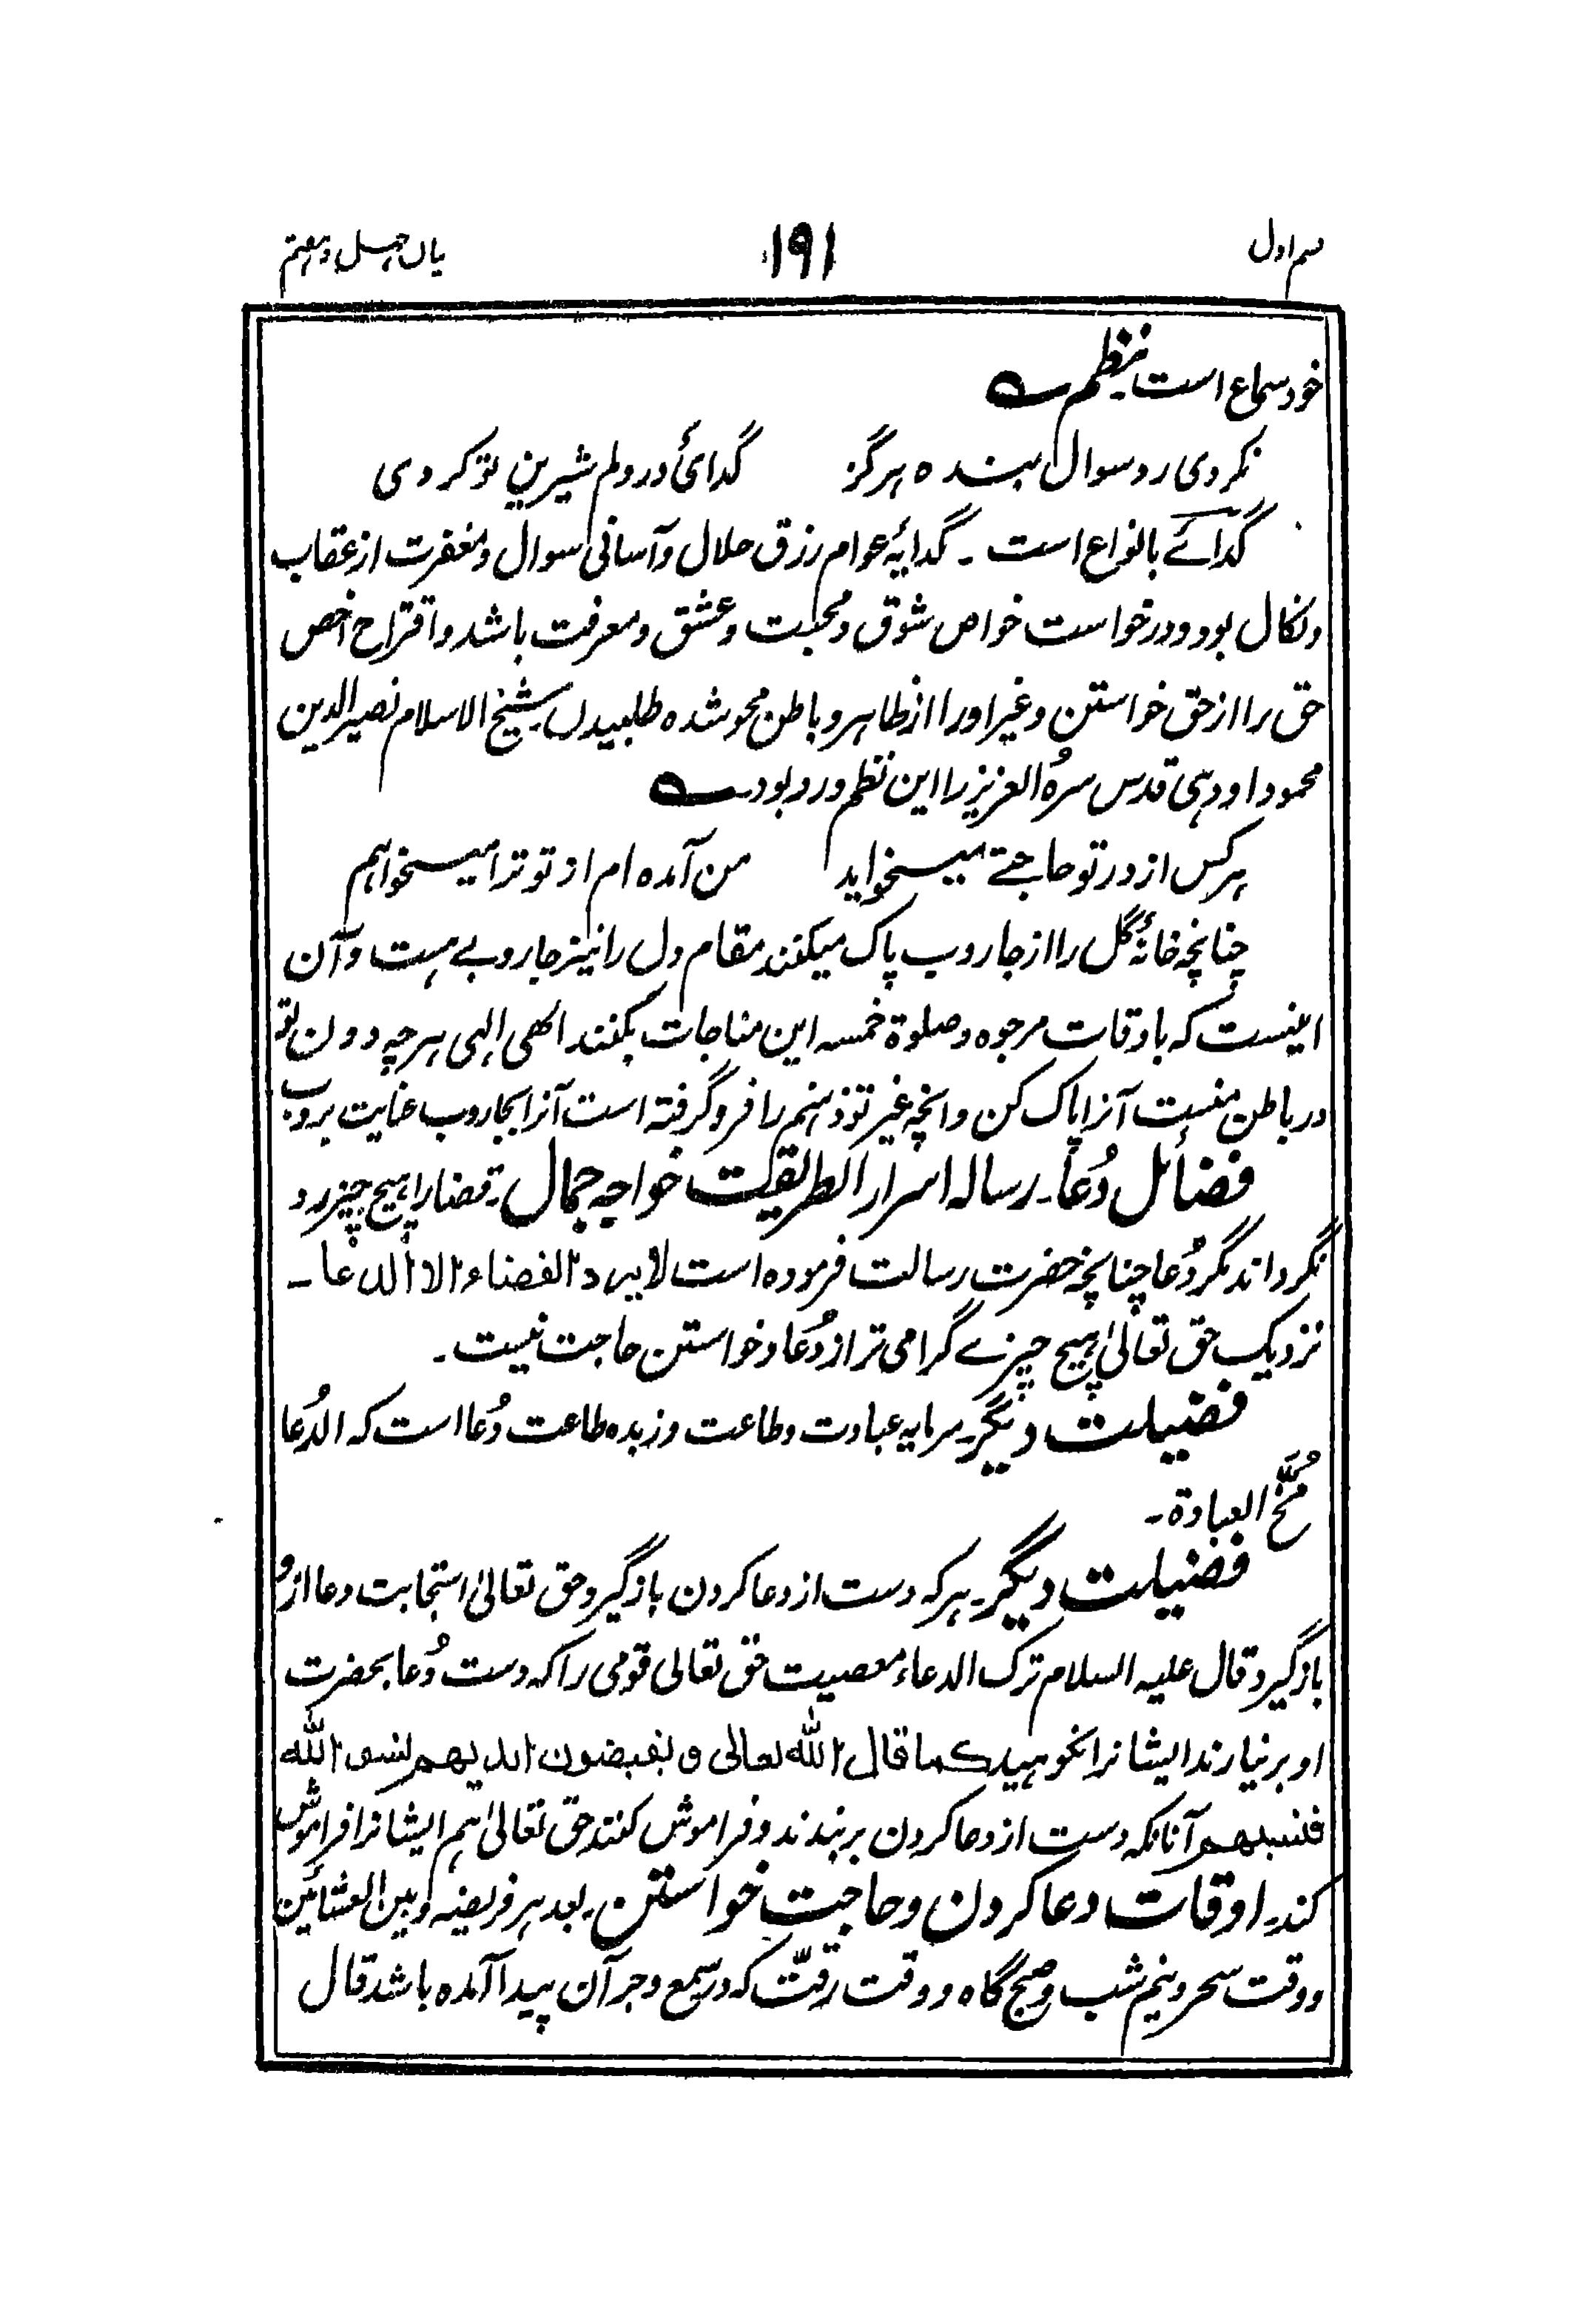 سم اول ۱۹۱ یان چہل و ہفتم
خود سماع است۔ نظم
نکردی رد سوال بندہ ہرگز گدائی در دلم شیرین تو کردی
گدائے بانواع است ۔ گدایۂ عوام رزق حلال و آسانی سوال و مغفرت از عقاب
و نکال بود و درخواست خواص شوق و محبت و عشق و معرفت باشد و اقتراح اخص
حق را از حق خواستن و غیر او را از ظاہر و باطن محو شدہ طلبیدن شیخ الاسلام نصیر الدین
محمود اودہی قدس سرہُ العزیز را این نظم ورد بود
ہر کس از در تو حاجتے میخواہد من آمدہ ام از تو ترا میخواہم
چنانچہ خانۂ گل را از جاروب پاک میکنند مقام دل را نیز جاروبے ہست و آن
اینست کہ باوقات مرجوہ و صلوۃ خمسہ این مناجات بکنند الٰہی الٰہی ہر چہ دون تو
در باطن منست آنرا پاک کن و انچہ غیر تو ذہنم را فرو گرفتہ است آنرا بجاروب عنایت بروب
فضائل دُعا۔ رسالہ اسرار الطریقت خواجہ جمال ۔ قضا را ہیچ چیز رد
نگرداند مگر دُعا چنانچہ حضرت رسالت فرمودہ است لا یرد القضاء الا الدعا ۔
نزدیک حق تعالیٰ ہیچ چیزے گرامی تر از دُعا و خواستن حاجت نیست ۔
فضیلت دیگر۔ سرمایہ عبادت و طاعت و زبدہ طاعت دُعا است کہ الدُعا
مُخُّ العبادۃ ۔
فضیلت دیگر۔ ہر کہ دست از دعا کردن بازگیرد حق تعالیٰ استجابت دعا ازو
بازگیرد قال علیہ السلام ترک الدعاء معصیت حق تعالی قومی را کہ دست دُعا بحضرت
او بر نیارند ایشانرا نکوہید کما قال اللہ تعالی و یقبضون ایدیهم نسوا اللہ
فنسیهم آنانکہ دست از دعا کردن بربندند و فراموش کنند حق تعالیٰ ہم ایشانرا فراموش
کند۔ اوقات دعا کردن و حاجت خواستن۔ بعد ہر فریضہ و بین العشائین
و وقت سحر و نیم شب و صبح گاہ و وقت رقّت کہ در سمع و جز آن پیدا آمدہ باشد قال